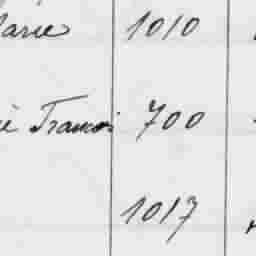 Marie 1010
è Francois 700
1017